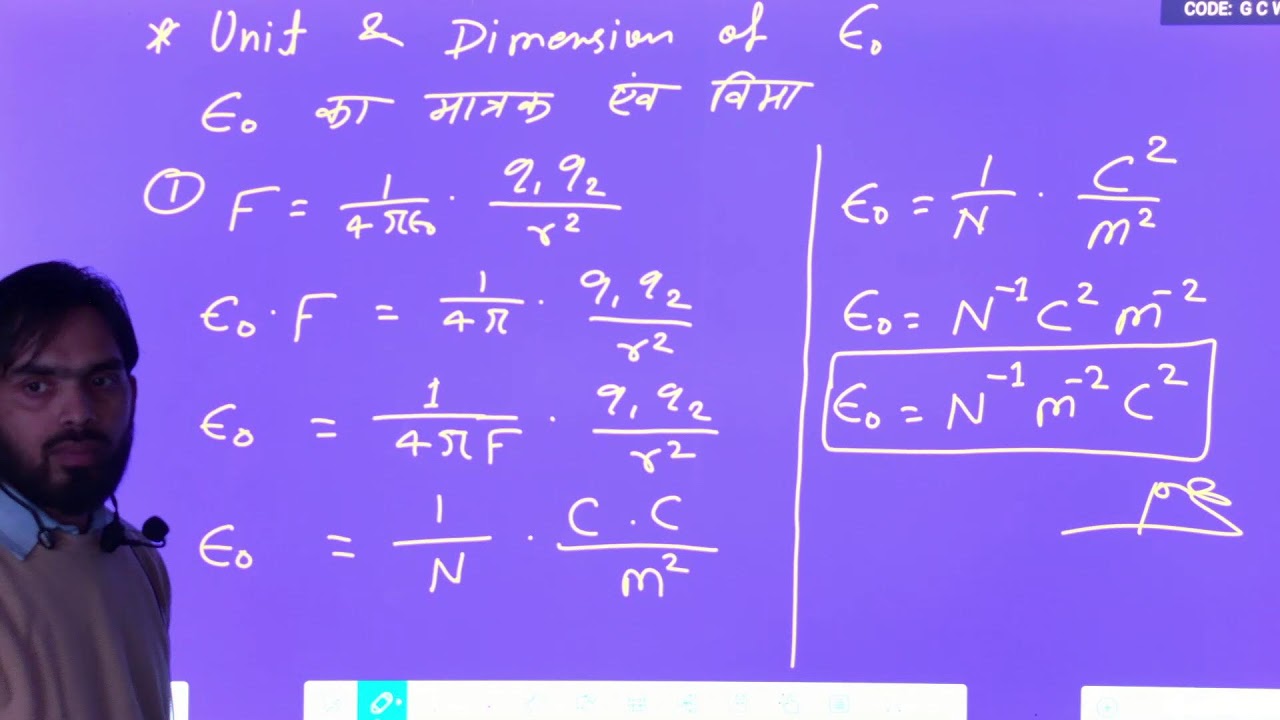 * Unit & Dimension of ϵ₀
ϵ₀ का मात्रक एंव विमा
① F = 1/4πϵ₀ · q₁q₂/r²
ϵ₀·F = 1/4π · q₁q₂/r²
ϵ₀ = 1/4πF · q₁q₂/r²
ϵ₀ = 1/N · C.C/m²
ϵ₀ = 1/N · C²/m²
ϵ₀ = N⁻¹ C² m⁻²
ϵ₀ = N⁻¹ m⁻² C²
CODE: G C